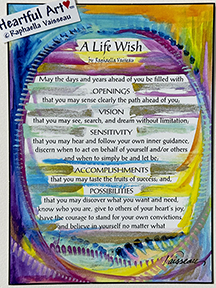 Heartful Art
© Raphaella Vaisseau
A Life Wish
by Raphaella Vaisseau
May the days and years ahead of you be filled with
OPENINGS
that you may sense clearly the path ahead of you,
VISION
that you may see, search, and dream without limitation,
SENSITIVITY
that you may hear and follow your own inner guidance,
discern when to act on behalf of yourself and/or others
and when to simply be and let be,
ACCOMPLISHMENTS
that you may taste the fruits of success, and,
POSSIBILITIES
that you may discover what you want and need,
know who you are, give to others of your heart's joy,
have the courage to stand for your own convictions,
and believe in yourself no matter what
Vaisseau